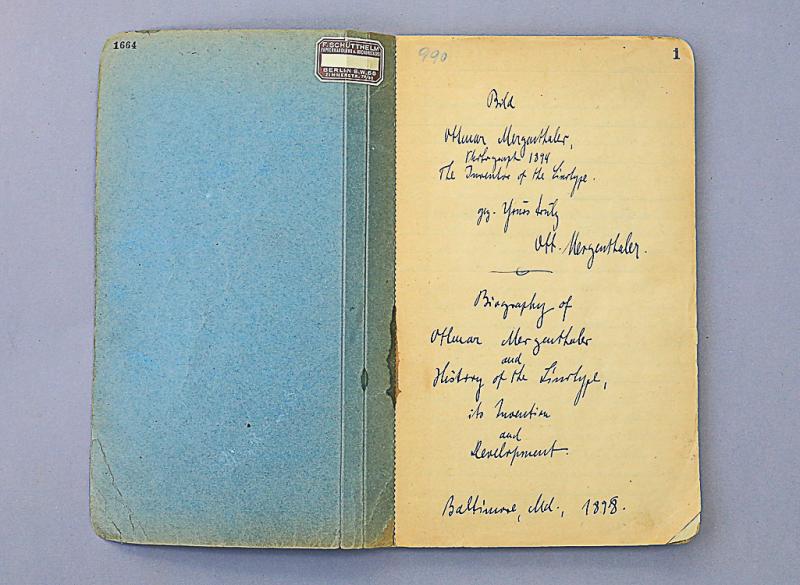 1664
F. SCHÜTTHELM
BERLIN S.W. 68
ZIMMERSTR.
990
1
Bild
Ottmar Mergenthaler,
Photograph 1894
The Inventor of the Linotype.
gez. Yours truly
Ott. Mergenthaler.
Biography of
Ottmar Mergenthaler
and
History of the Linotype,
its Invention
and
Development.
Baltimore, Md., 1898.